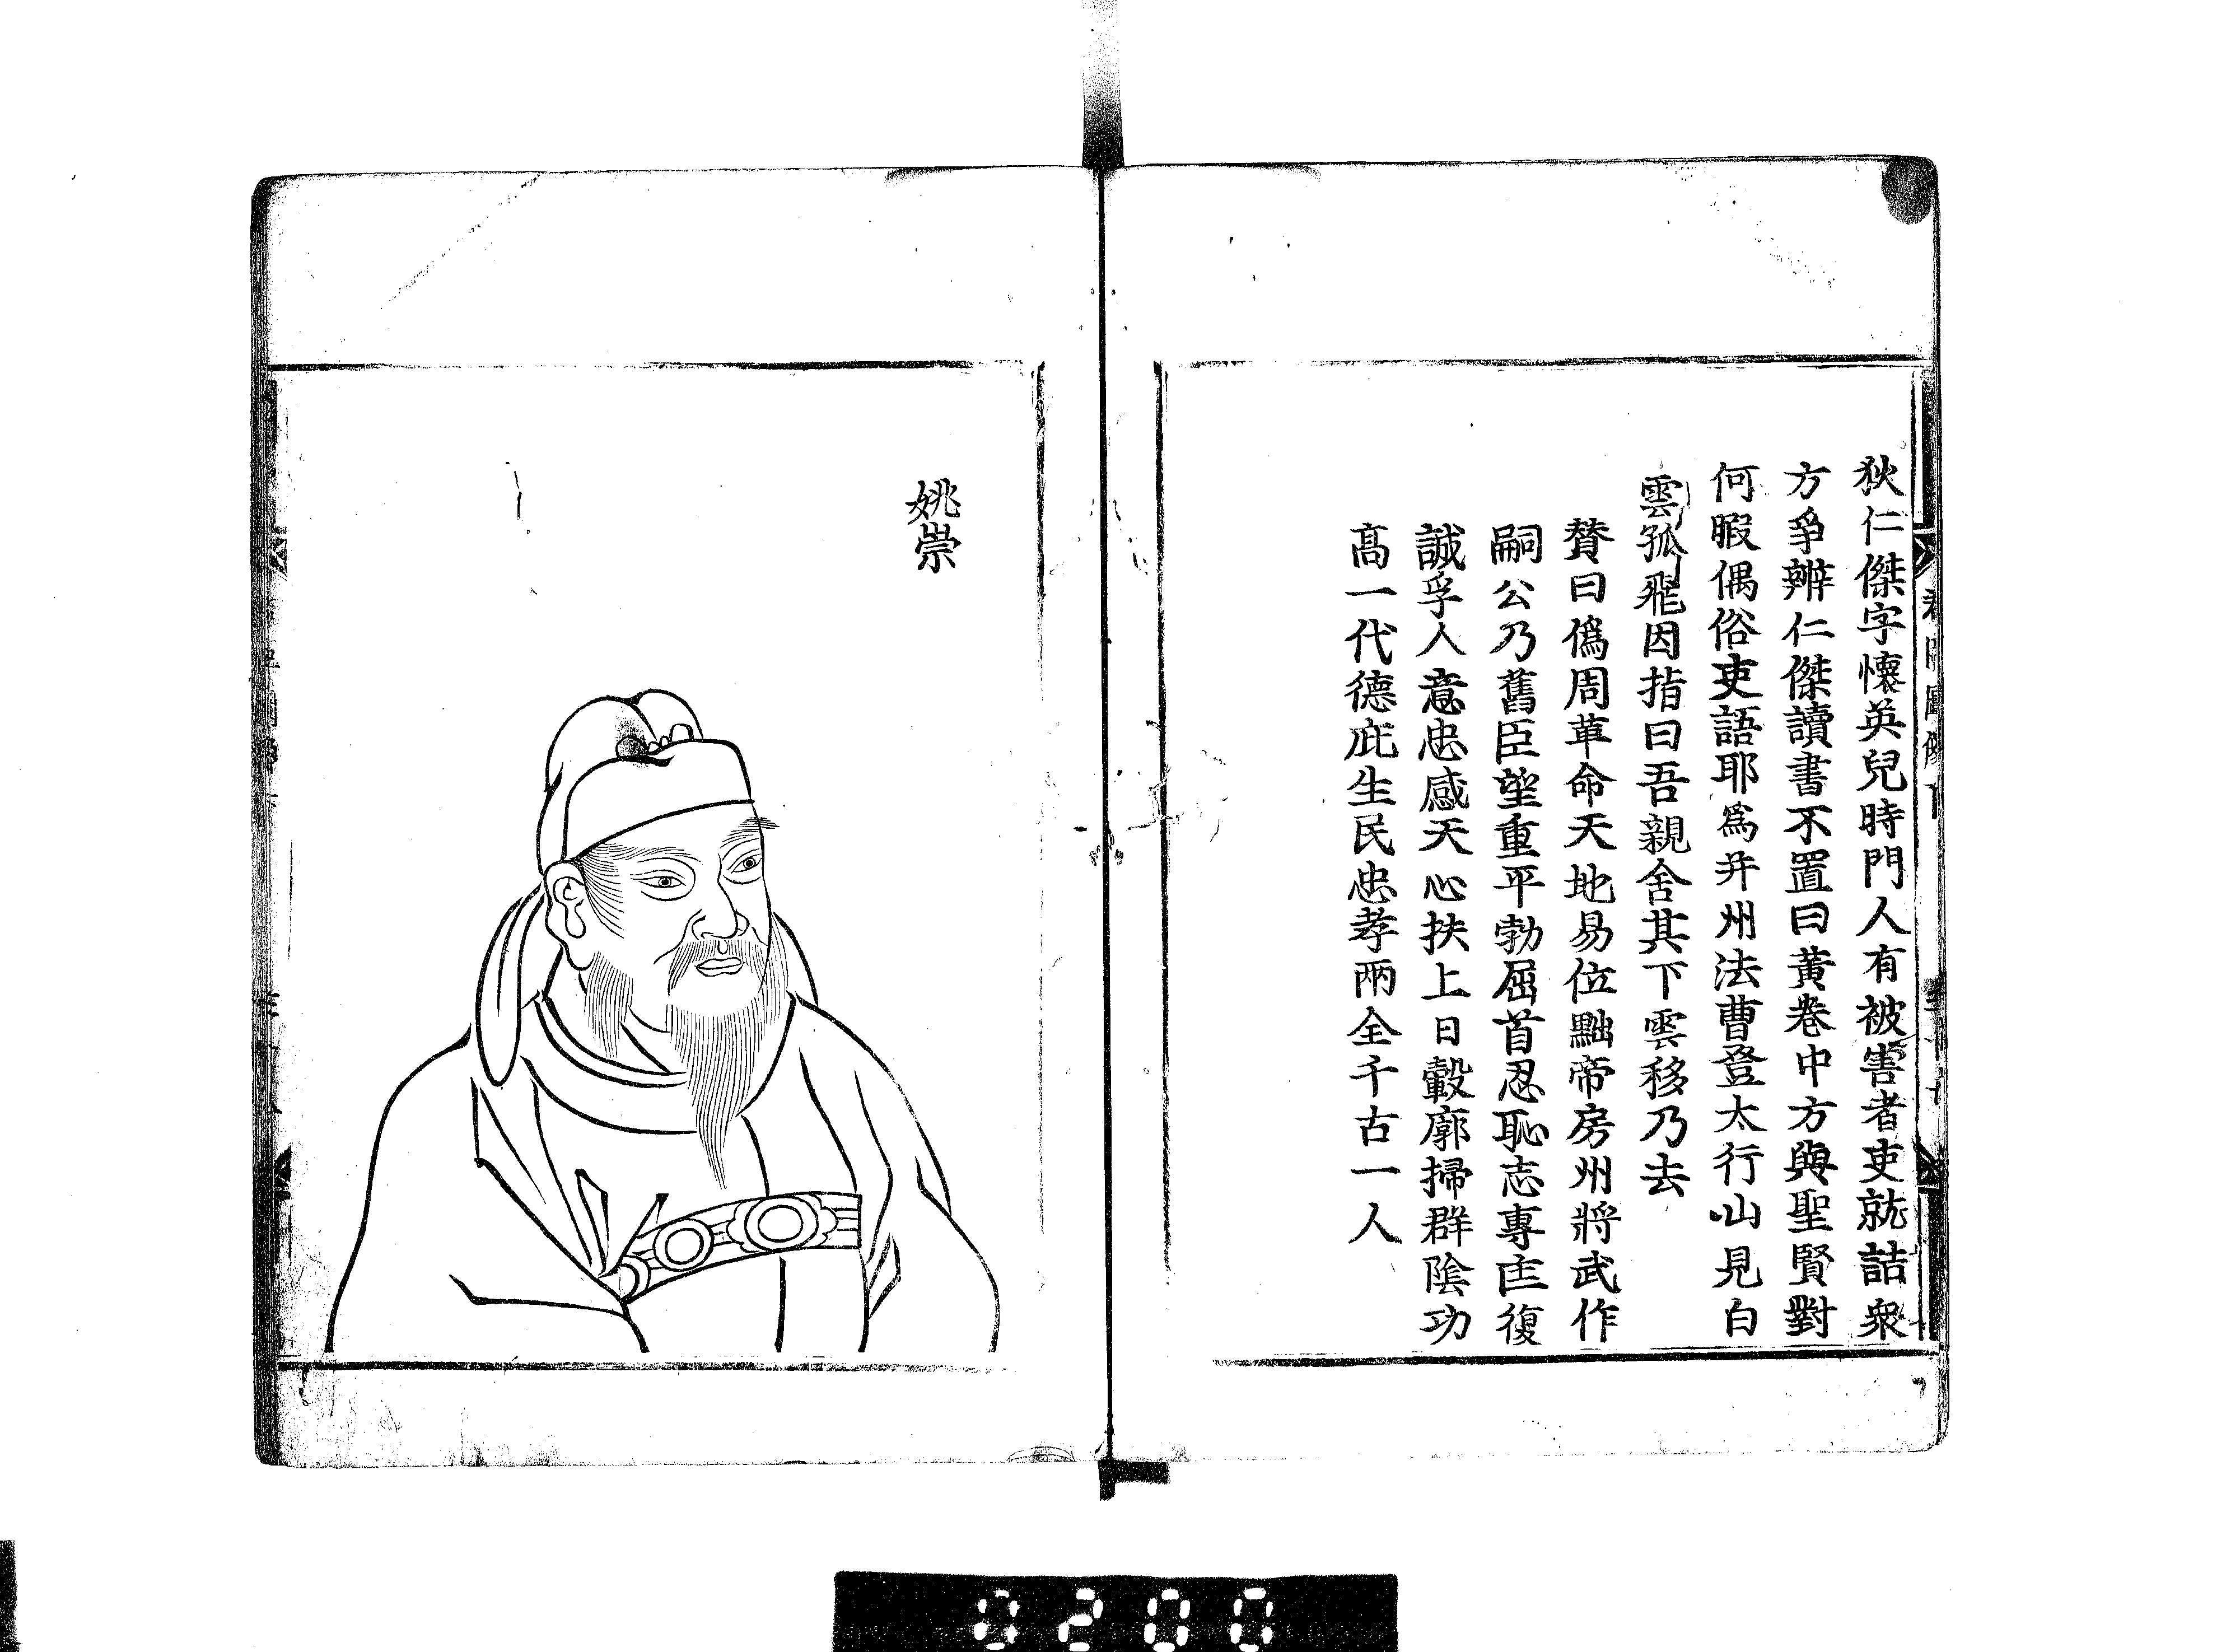 狄仁傑字懷英兒時門人有被害者吏就詰衆
方爭辨仁傑讀書不置曰黃卷中方與聖賢對
何暇偶俗吏語耶爲并州法曹登太行山見白
雲孤飛因指曰吾親舍其下雲移乃去
賛曰僞周革命天地易位黜帝房州將武作
嗣公乃舊臣望重平勃屈首忍恥志專匡復
誠孚人意忠感天心扶上日轂廓掃群陰功
高一代德庇生民忠孝兩全千古一人
姚崇
0200